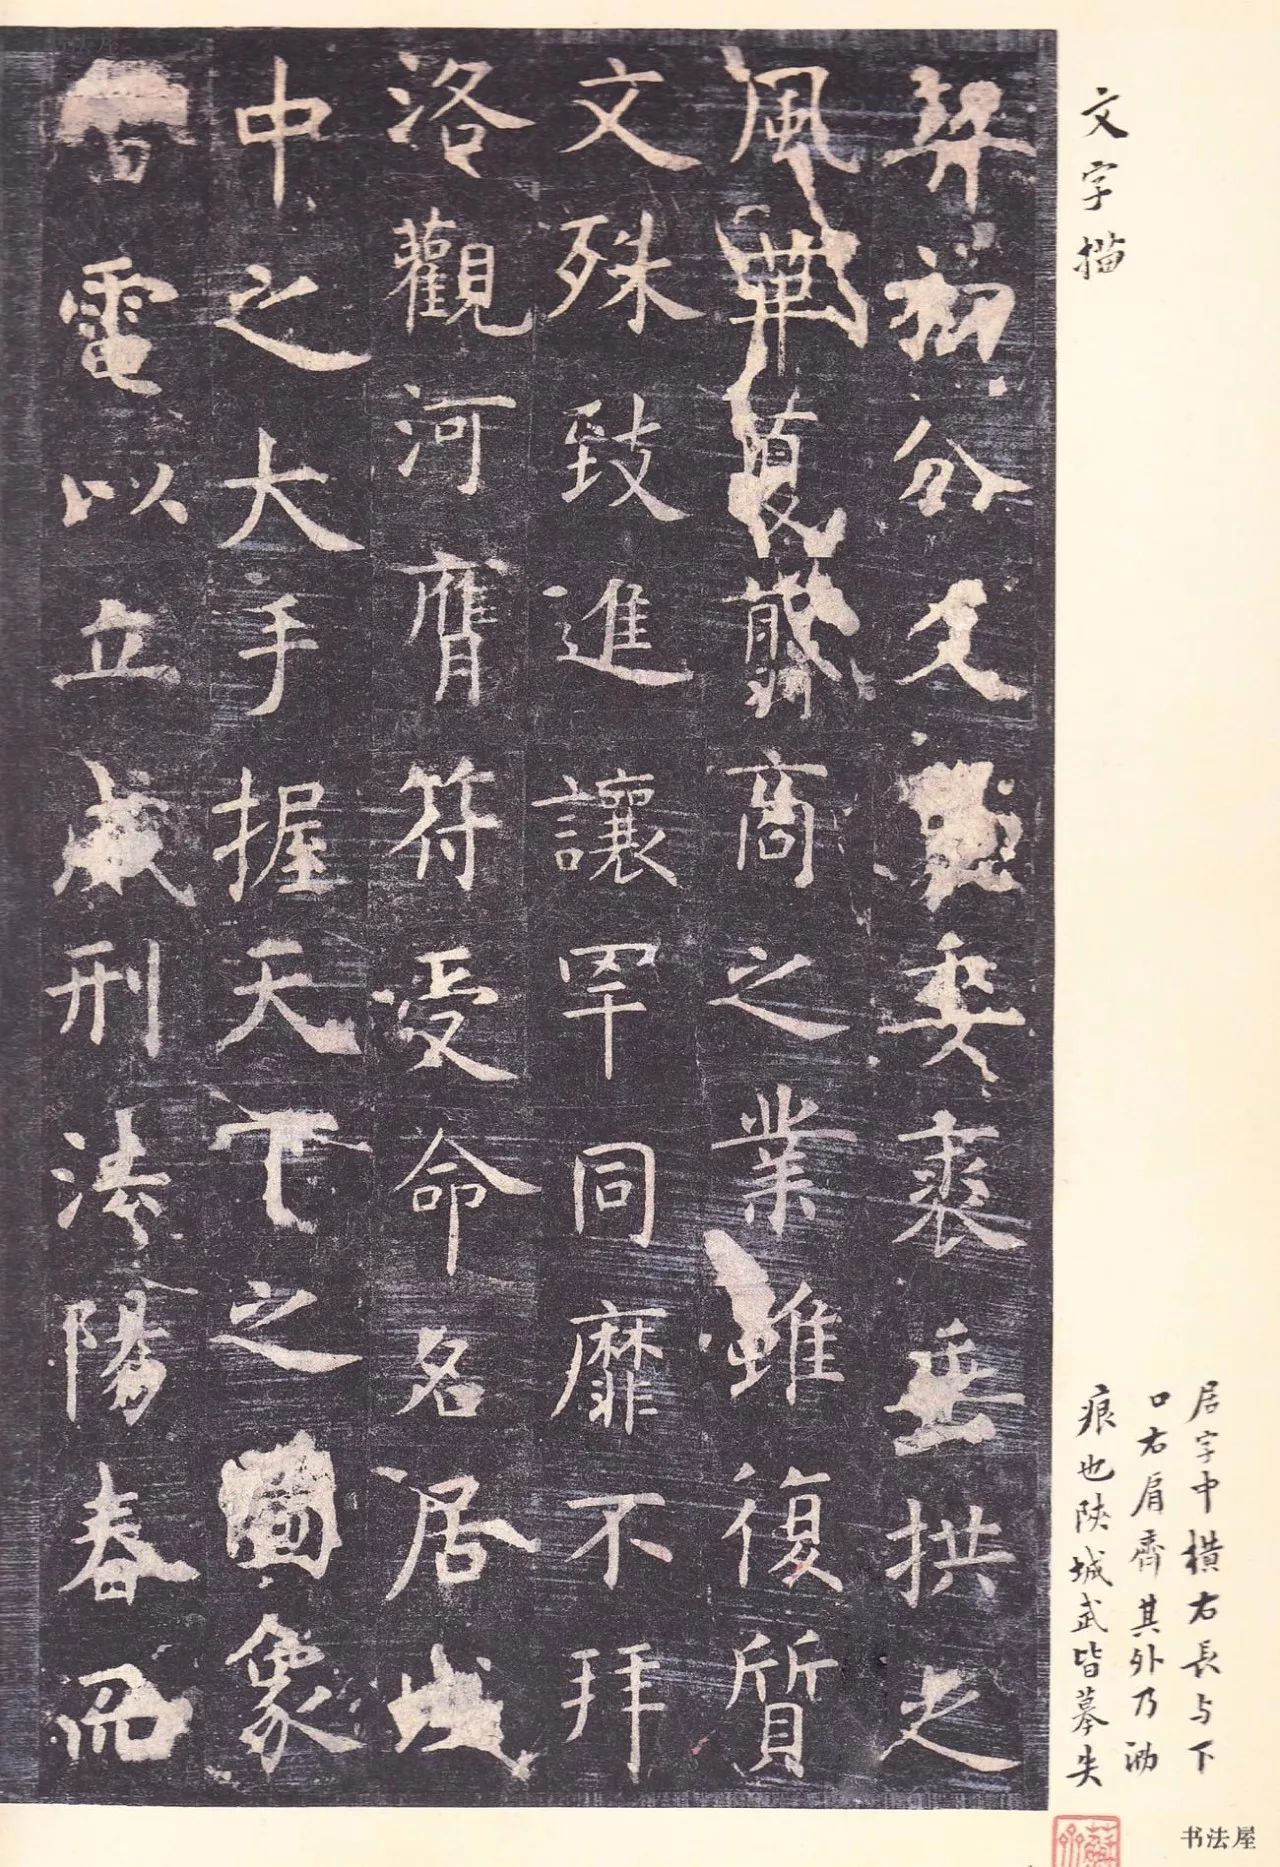 文字描
居字中橫右長与下
口右肩齊其外乃泐
痕也陕城武皆摹失
契初分爻象委裘垂拱之
風革夏翦商之業雖復質
文殊致進讓罕同靡不拜
洛觀河膺符受命名居域
中之大手握天下之圖象
雷電以立威刑法陽春而
书法屋